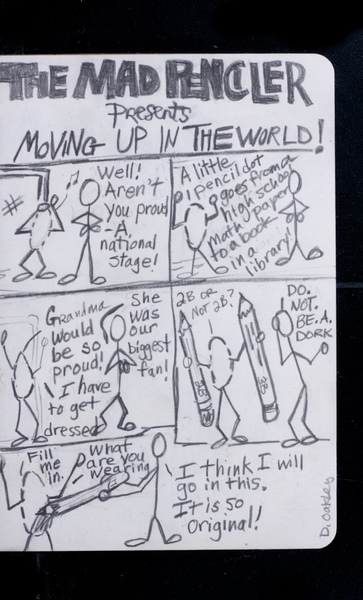 THE MAD PENCLER
Presents
MOVING UP IN THE WORLD!
#
Well!
Aren't
you proud
-A
national
stage!
A little
pencil dot
goes from a
high school
math paper
to a book
in a
library!
Grandma
would
be so
proud!
I have
to get
dressed
She
was
our
biggest
fan!
2B OR
NOT 2B?
3B
3B
DO.
NOT.
BE. A.
DORK
Fill
me
in.
What
are you
wearing
I think I will
go in this.
It is so
Original!
D. Oakley